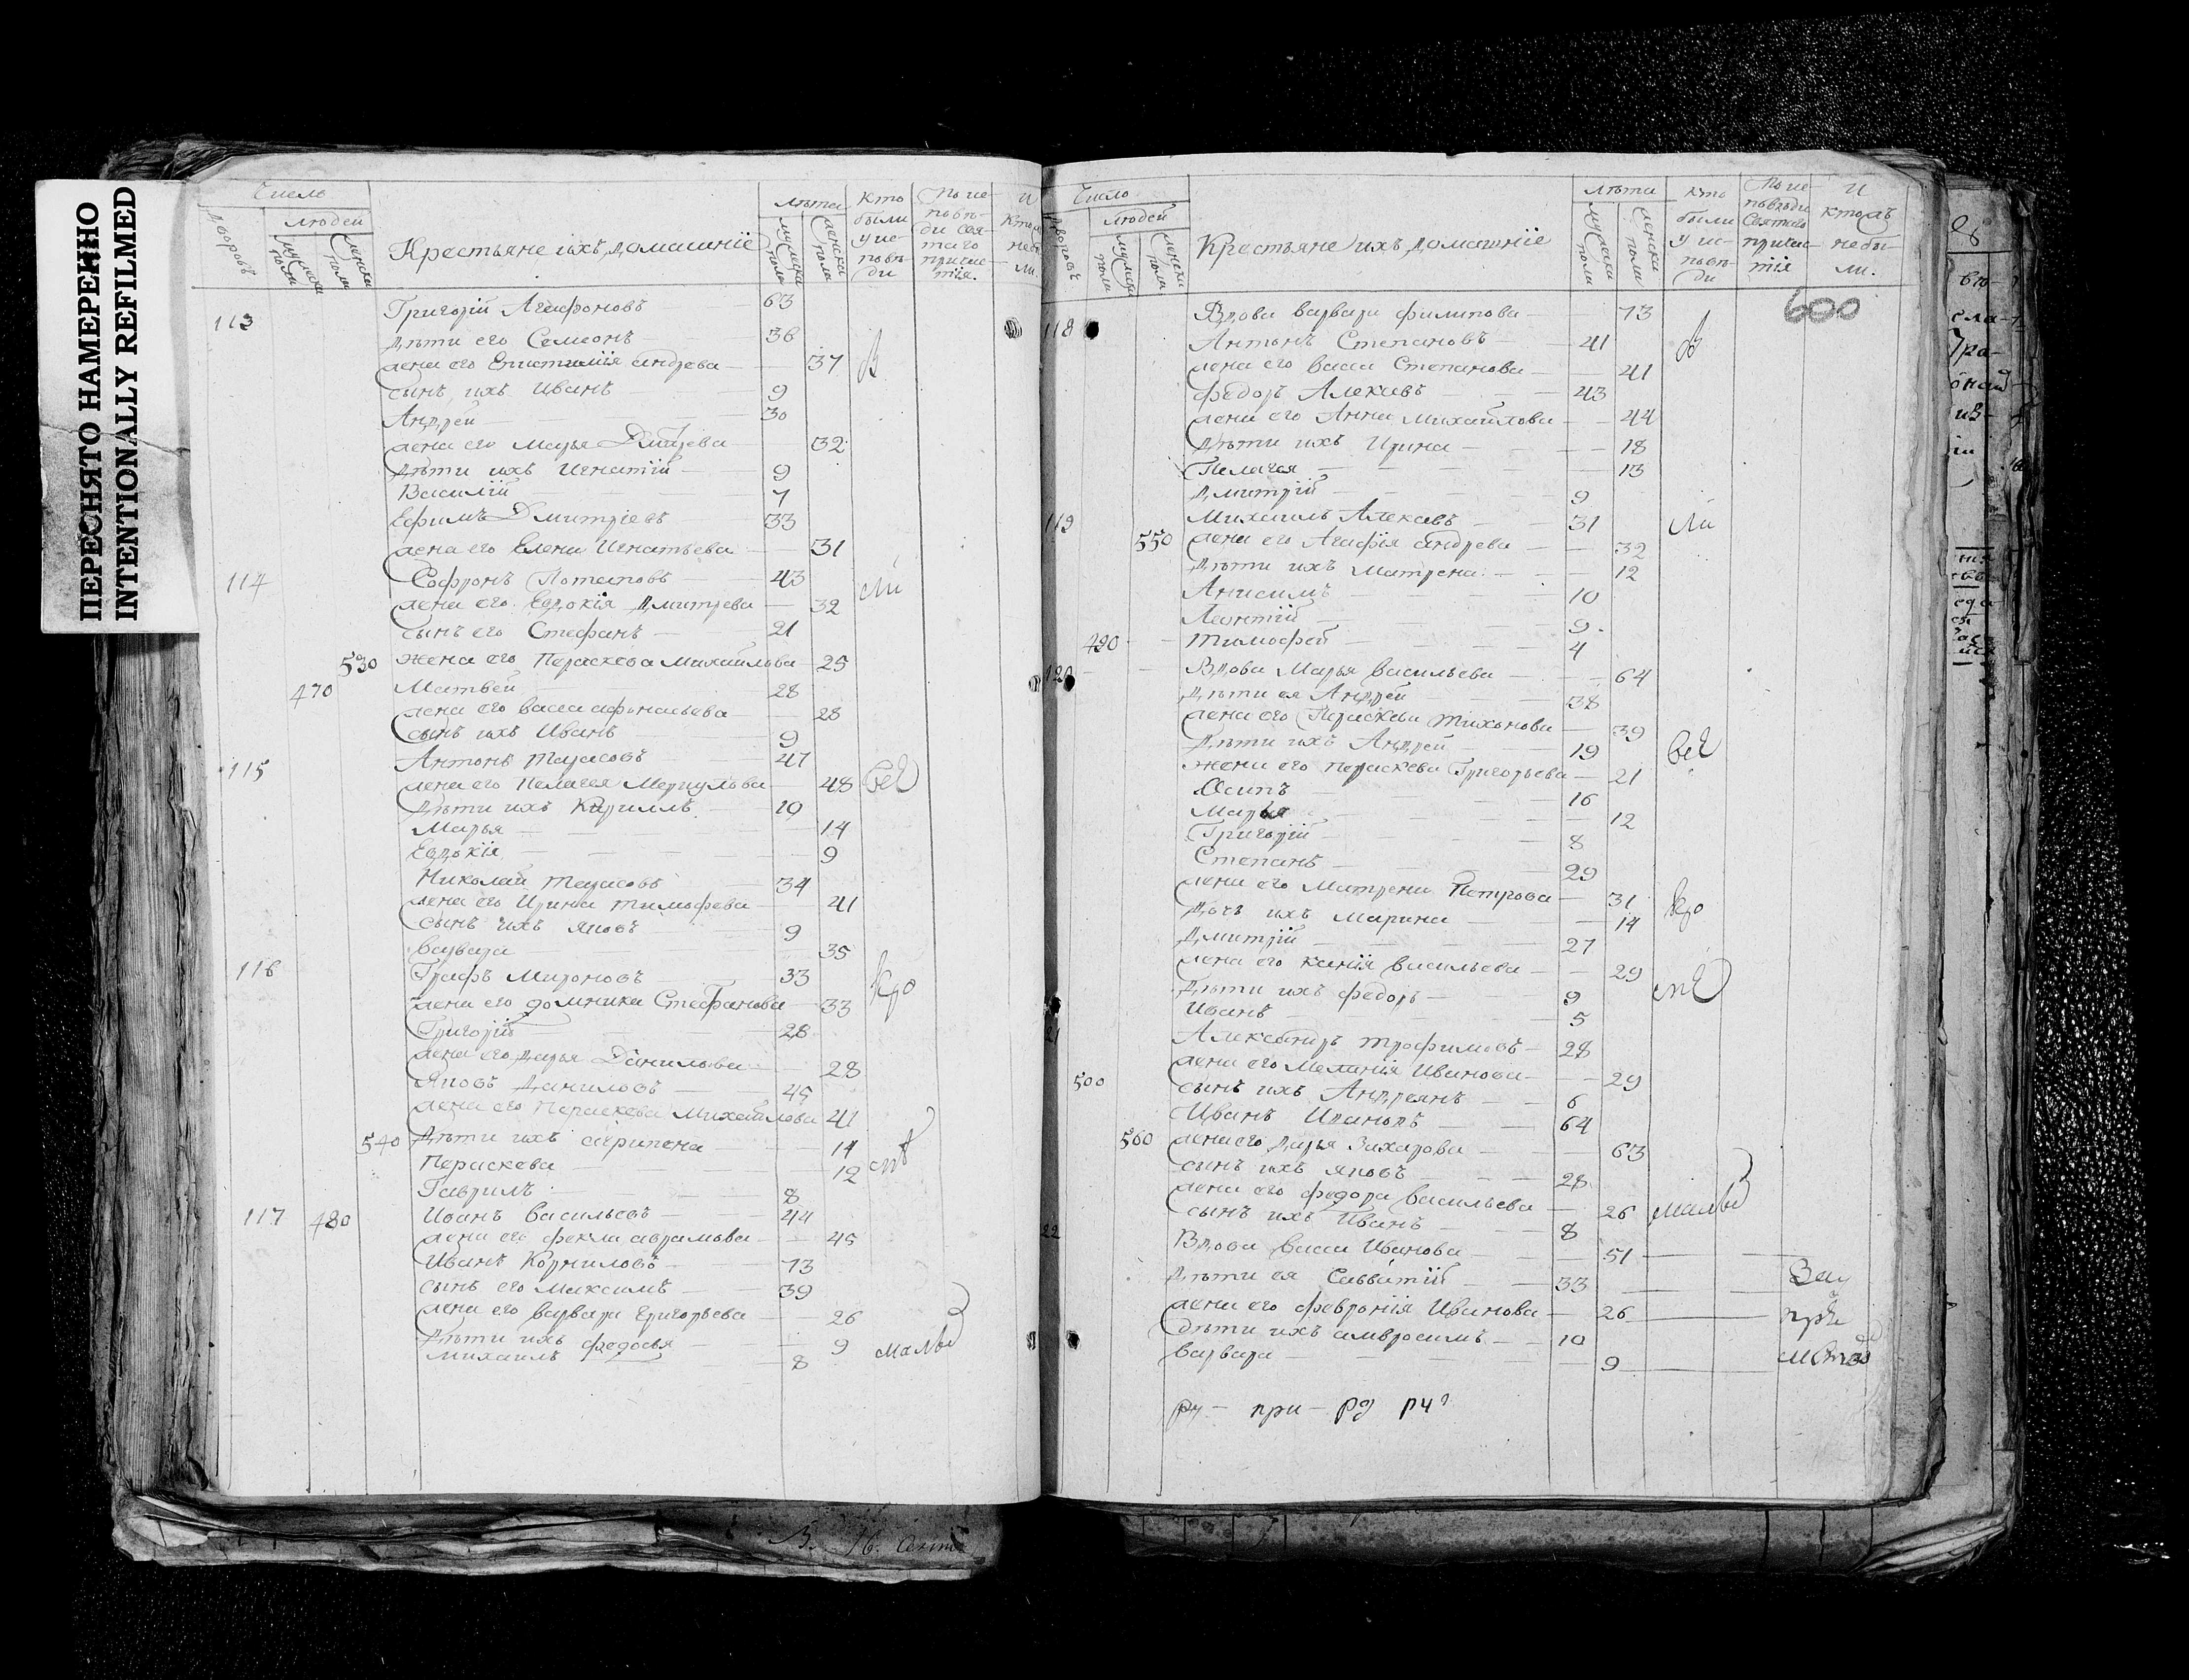 ПЕРЕСНЯТО НАМЕРЕННО
INTENTIONALLY REFILMED
Число Лѣта Кто были у исповѣди
Дворовъ людей Крестьяне ихъ домашнїе мужеска пола женска пола По исповѣди святаго причастїя. И
113 Григорїй Агафоновъ 63
Дѣти его Семеонъ 36
жена его Епистимїя андрева 37 В
сынъ ихъ Иванъ 9
Андрей 30
жена его Марья Дмитрева 32
Дѣти ихъ Игнатїй 9
Василїй 7
Ефимъ Дмитрїевъ 33
жена его Елена Игнатьева 31
114 Софронъ Потаповъ 43 ли
жена его Евдокїя Дмитрева 32
сынъ его Стефанъ 21
530 жена его Пераскева Михайлова 25
470 Матвей 28
жена его васса афонасьева 28
сынъ ихъ Иванъ 9
115 Антонъ Тарасовъ 47
жена его Пелагея Меркулова 48
Дѣти ихъ Кириллъ 19
Марья 14
Евдокїя 9
Николай Тарасовъ 34
жена его Ирина тимофева 41
сынъ ихъ яковъ 9
варвара 35
116 Графъ Мироновъ 33
жена его домника Стефанова 33
Григорїй 28
жена его дарья Данилова 28
Яковъ Даниловъ 45
жена его Пераскева Михайлова 41
540 Дѣти ихъ агрипена 14
Пераскева 12
Гаврилъ 8
117 480 Иванъ васильевъ 44
жена его фекла аврамова 45
Иванъ Корниловъ 73
сынъ его Максимъ 39
жена его варвара григорьева 26
Дѣти ихъ федосья 9
михаилъ 8
Число Лѣта Кто были у исповѣди
Дворовъ людей Крестьяне ихъ домашнїе мужеска пола женска пола По исповѣди Святаго причастїя И кто жъ небыли.
600
118 Вдова варвара филипова 73
Антонъ Степановъ 41 В
жена его васса Степанова 41
федоръ Алекевъ 43
жена его Анна михайлова 44
Дѣти ихъ Ирина 18
Пелагея 13
Дмитрїй 9
119 Михаилъ Алекевъ 31 ли
550 жена его Агафїя андрева 32
Дѣти ихъ Матрена 12
Анисимъ 10
Леонтїй 9
490 тимофей 4
120 Вдова Марья васильева 64
Дѣти ея Андрей 38
жена его Пераскева тихонова 39
Дѣти ихъ Андрей 19
жена его пераскева Григорьева 21
Осипъ 16
Марья 12
Григорїй 8
Степанъ 29
жена его Матрена Петрова 31
Дочь ихъ Марина 14
Дмитрїй 27
жена его ксанїя васильева 29
Дѣти ихъ федоръ 9
Иванъ 5
Александръ трофимовъ 28
жена его Меланїя Иванова 29
500 сынъ ихъ Андреянъ 6
Иванъ Ивановъ 64
560 жена его дарья Захарова 63
сынъ ихъ яковъ 28
жена его федора васильева 26
сынъ ихъ Иванъ 8
22 Вдова васса Иванова 51
Дѣти ея Савватїй 33
жена его февронїя Иванова 26
дѣти ихъ амвросимъ 10
варвара 9